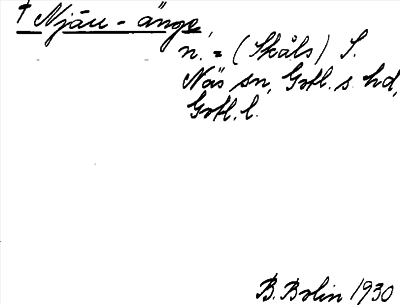 † Njäu-änge,
n. = (Skåls) S.
Näs sn, Gotl. s. hd,
Gotl. l.
B. Bolin 1930